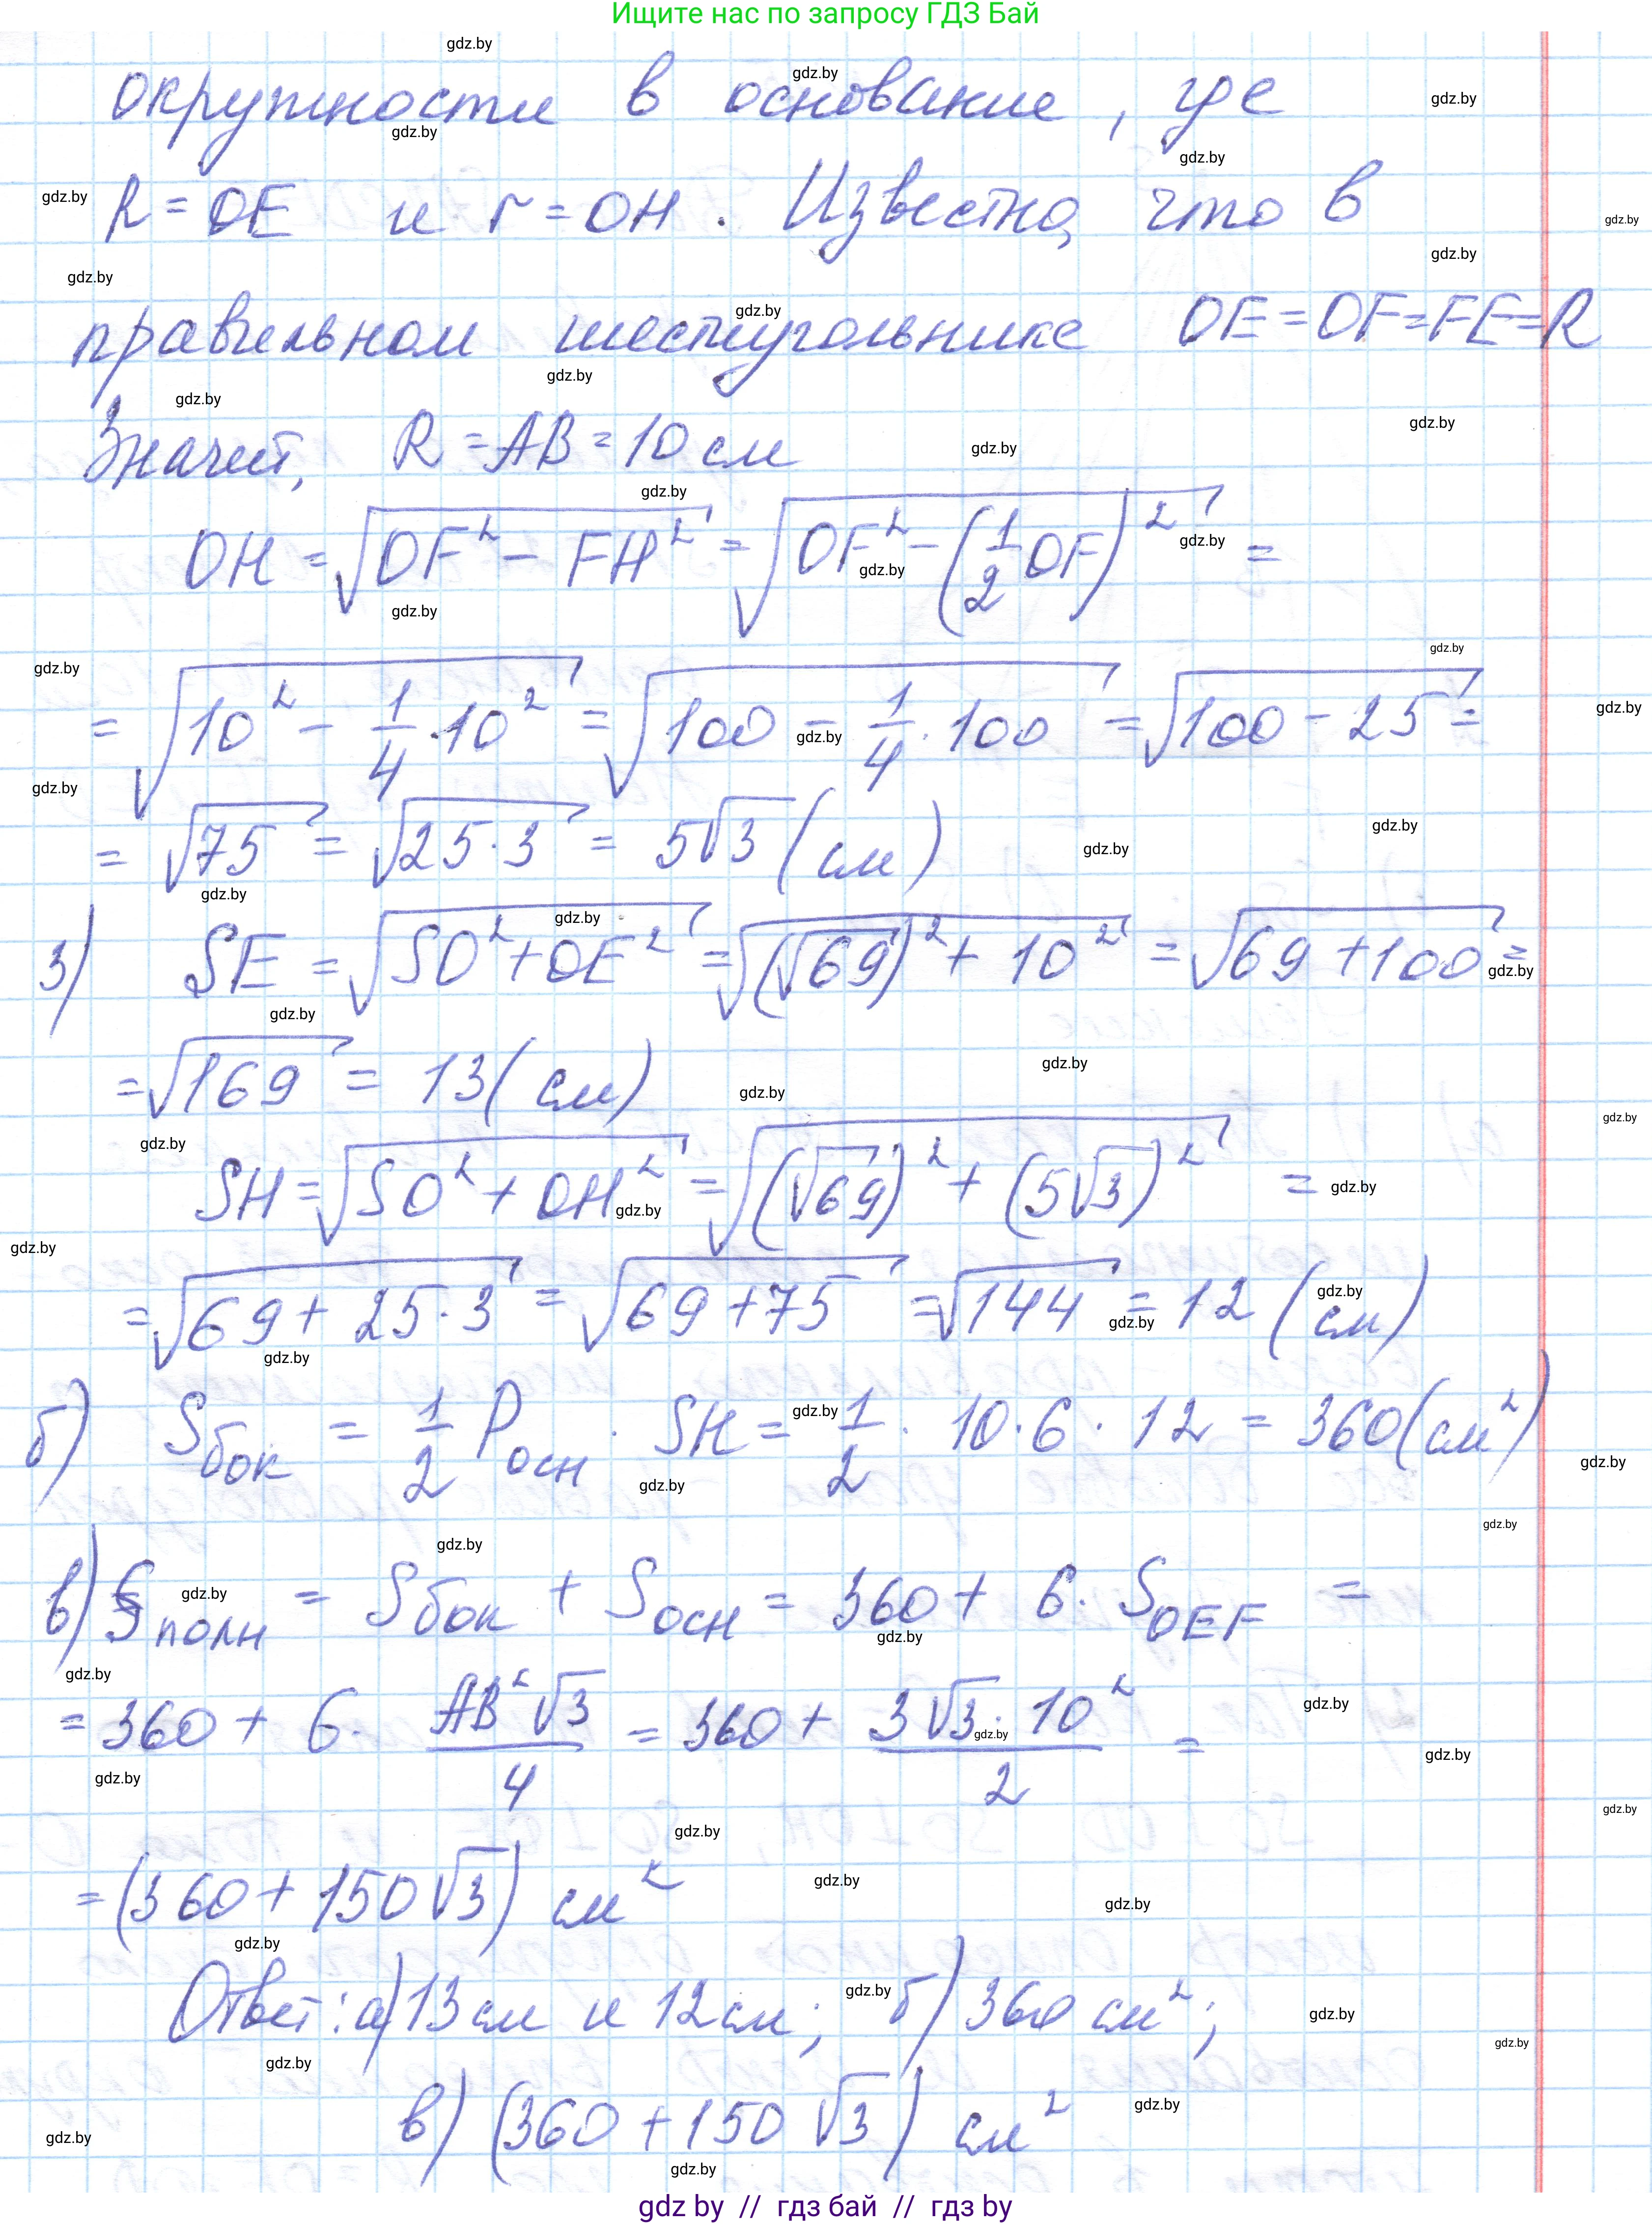 Ищите нас по запросу ГДЗ Бай
окружности в основание, где
R = OE и r = OH. Известно, что в
правильном шестиугольнике OE = OF = FE = R
Значит, R = AB = 10 см
OH = √(OF² − FH²) = √(OF² − (1/2 OF)²) =
= √(10² − 1/4 · 10²) = √(100 − 1/4 · 100) = √(100 − 25) =
= √75 = √(25 · 3) = 5√3 (см)
3) SE = √(SO² + OE²) = √((√69)² + 10²) = √(69 + 100) =
= √169 = 13 (см)
SH = √(SO² + OH²) = √((√69)² + (5√3)²) =
= √(69 + 25 · 3) = √(69 + 75) = √144 = 12 (см)
б) Sбок = 1/2 Pосн · SH = 1/2 · 10 · 6 · 12 = 360 (см²)
в) Sполн = Sбок + Sосн = 360 + 6 · SOEF =
= 360 + 6 · AB²√3/4 = 360 + 3√3 · 10²/2 =
= (360 + 150√3) см²
Ответ: а) 13 см и 12 см; б) 360 см²;
в) (360 + 150√3) см²
gdz by // гдз бай // гдз by